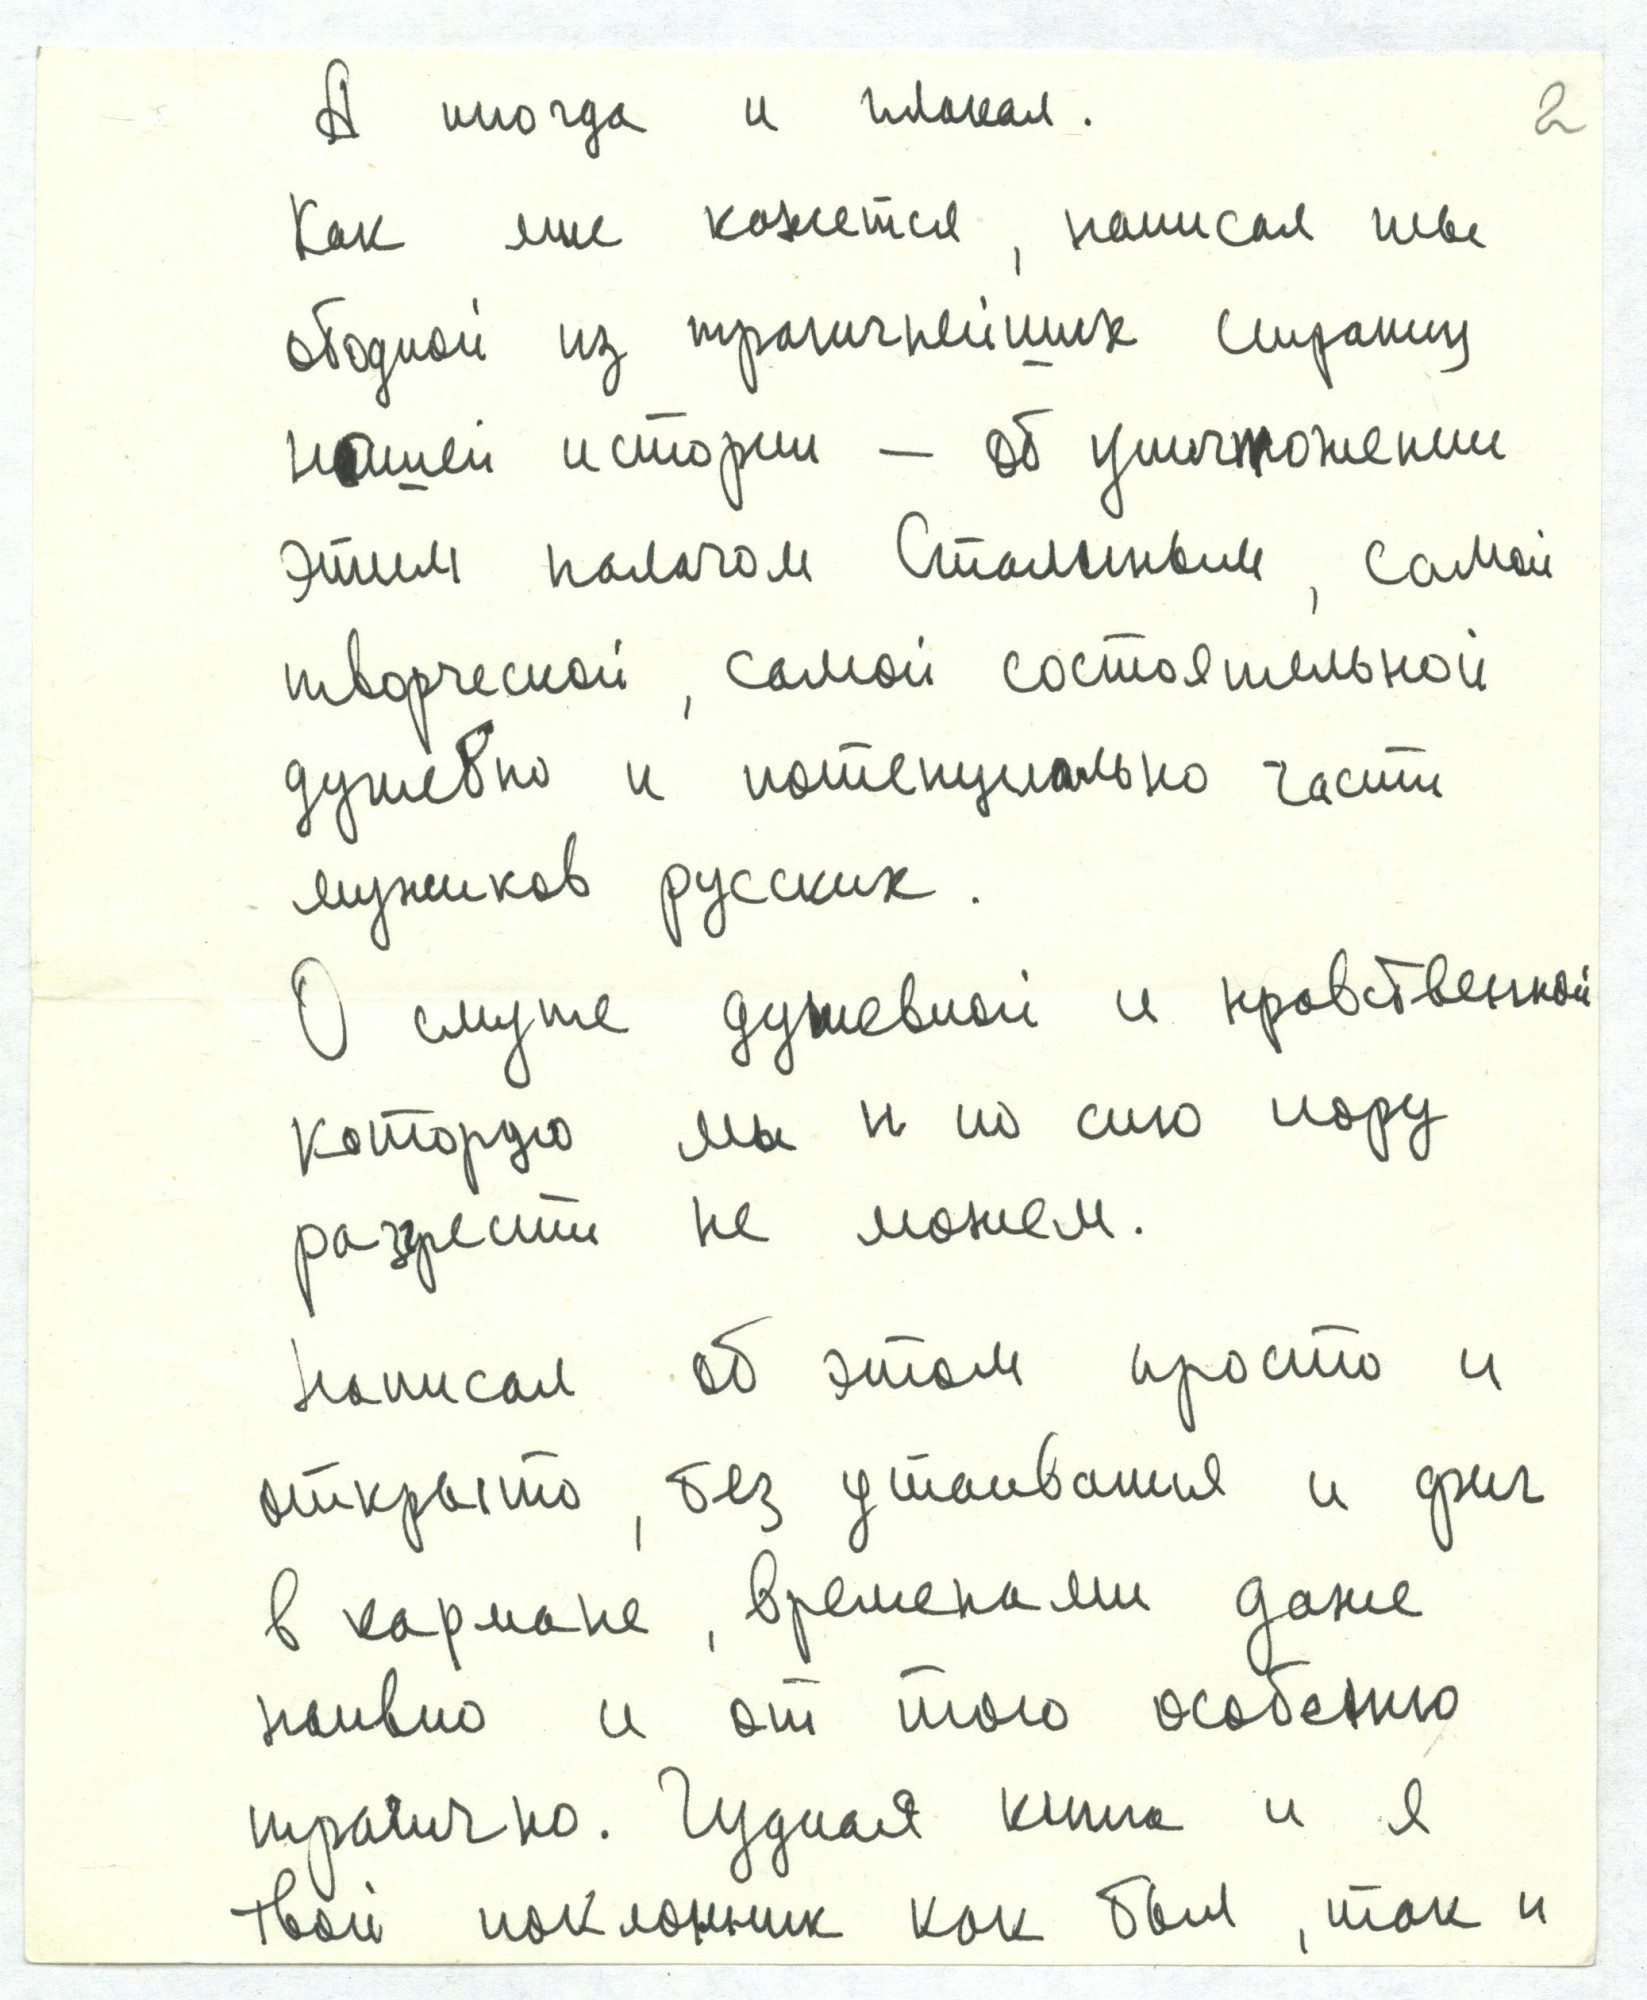 2
А иногда и плакал.
Как мне кажется, написал ты
об одной из трагичнейших страниц
нашей истории — об уничтожении
этим палачом Сталиным, самой
творческой, самой состоятельной
душевно и потенциально части
мужиков русских.
О смуте душевной и нравственной
которую мы и по сию пору
разгрести не можем.
Написал об этом просто и
открыто, без утаивания и фиг
в кармане, временами даже
наивно и от того особенно
трагично. Чудная книга и я
твой поклонник как был, так и